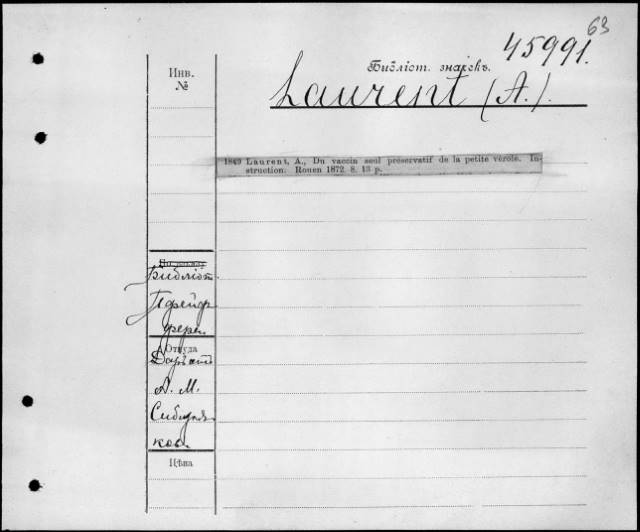 63
45991.
Библіот. значекъ.
Инв.
№
Laurent (A.).
1849 Laurent, A., Du vaccin seul préservatif de la petite vérole. In-
struction. Rouen 1872. 8. 13 p.
Библіот.
Пфейф
фера.
Откуда
Даръ
А. М.
Сибиря
кова
Цѣна